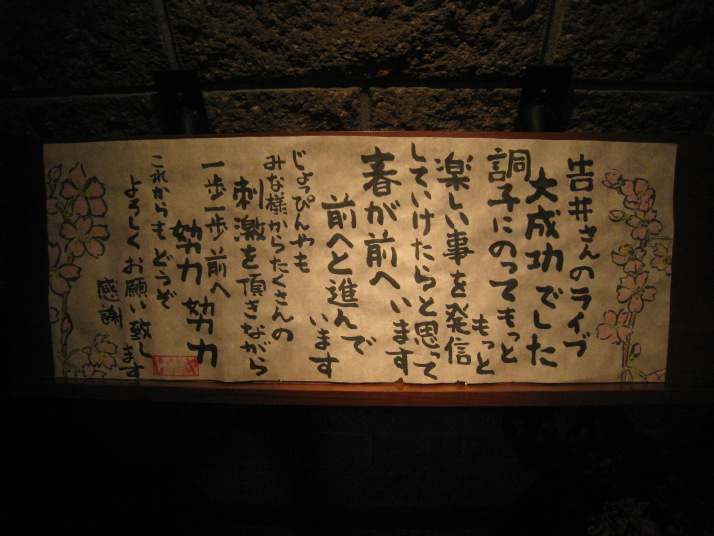 吉井さんのライブ
大成功でした
調子にのってもっと
もっと
楽しい事を発信
していけたらと思って
います
春が前へ
前へと進んで
います
じょっぴんやも
みな様からたくさんの
刺激を頂きながら
一歩一歩前へ
努力努力
これからもどうぞ
よろしくお願い致します
感謝